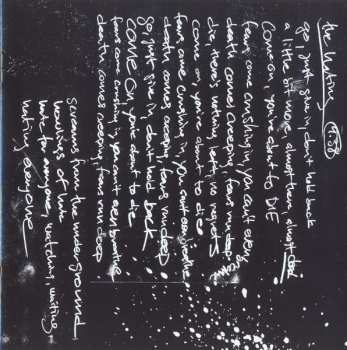 the hating 4:08
go, just give in, don't hold back
a little bit more, almost there, almost
Come on, you're about to DIE
fears come crushing in, you can't even
death comes creeping, fears run deep
die, there's nothing left, no regrets
come on, you're about to die
fears come crushing in, you can't even breathe
death comes creeping, fears run deep
go, just give in, don't hold back
COME ON, you're about to die
fears come crushing in, you can't even breathe
death comes creeping, fears run deep
screams from the underground
howling of hate
hate for everyone, watching, waiting
hating everyone